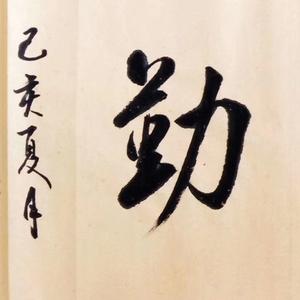 勤
己亥夏月